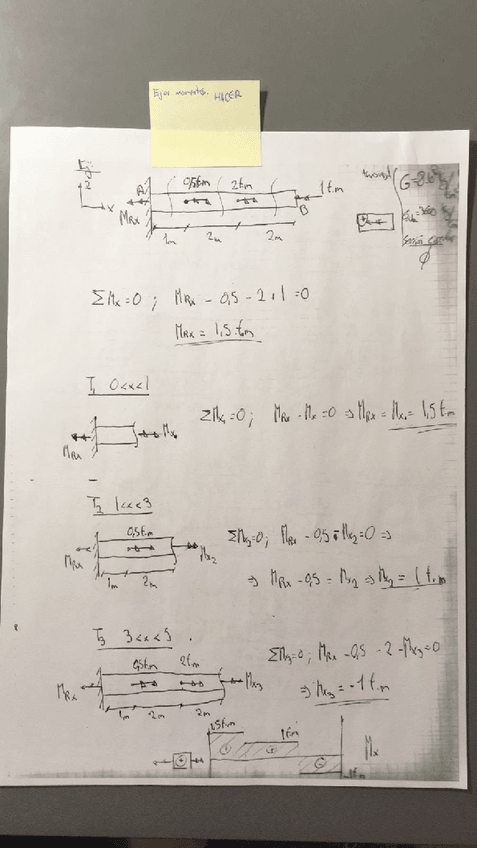 Ejer. momentos. HACER
Ej
z
x
A
0,5t.m
2t.m
1t.m
B
M_Rx
1m 2m 2m
ΣM_x=0 ; M_Rx - 0,5 - 2 + 1 = 0
M_Rx = 1,5 t.m
T_1 0<x<1
M_Rx
M_x1
ΣM_x1=0 ; M_Rx - M_x=0 ⇒ M_Rx = M_x1 = 1,5 t.m
T_2 1<x<3
0,5t.m
M_Rx
M_x2
1m 2m
ΣM_x2=0 ; M_Rx - 0,5 - M_x2=0 ⇒
⇒ M_Rx - 0,5 = M_x2 ⇒ M_x2 = 1 t.m
T_3 3<x<5
0,5t.m 2t.m
M_Rx
M_x3
1m 2m 2m
ΣM_x3=0 ; M_Rx - 0,5 - 2 - M_x3=0
⇒ M_x3 = -1 t.m
1,5t.m
1t.m
M_x
+
+
-
-1t.m